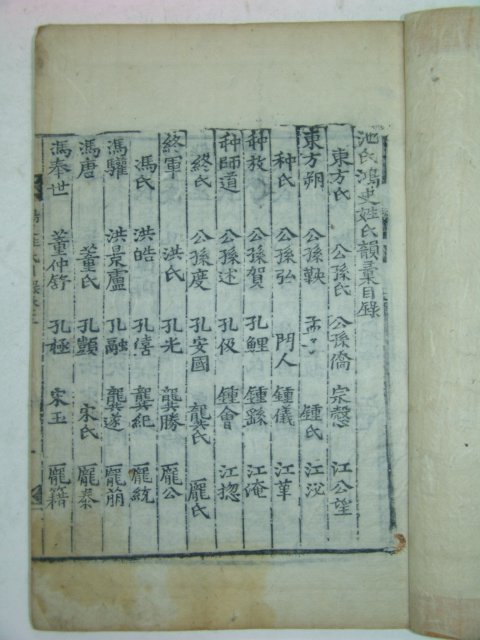 池氏鴻史姓氏韻彙目錄
東方氏 公孫氏 公孫僑 宗慤 江公望
東方朔 公孫鞅 鍾氏 江泌
种氏 公孫弘 門人 鍾儀 江革
种放 公孫賀 孔鯉 鍾繇 江淹
种師道 公孫述 孔伋 鍾會 江揔
終氏 公孫度 孔安國 龔氏 龐氏
終軍 洪氏 孔光 龔勝 龐公
馮氏 洪皓 孔僖 龔紀 龐統
馮驩 洪景盧 孔融 龔遂 龐萠
馮唐 董氏 孔顗 宋氏 龐秦
馮奉世 董仲舒 孔極 宋玉 龐籍